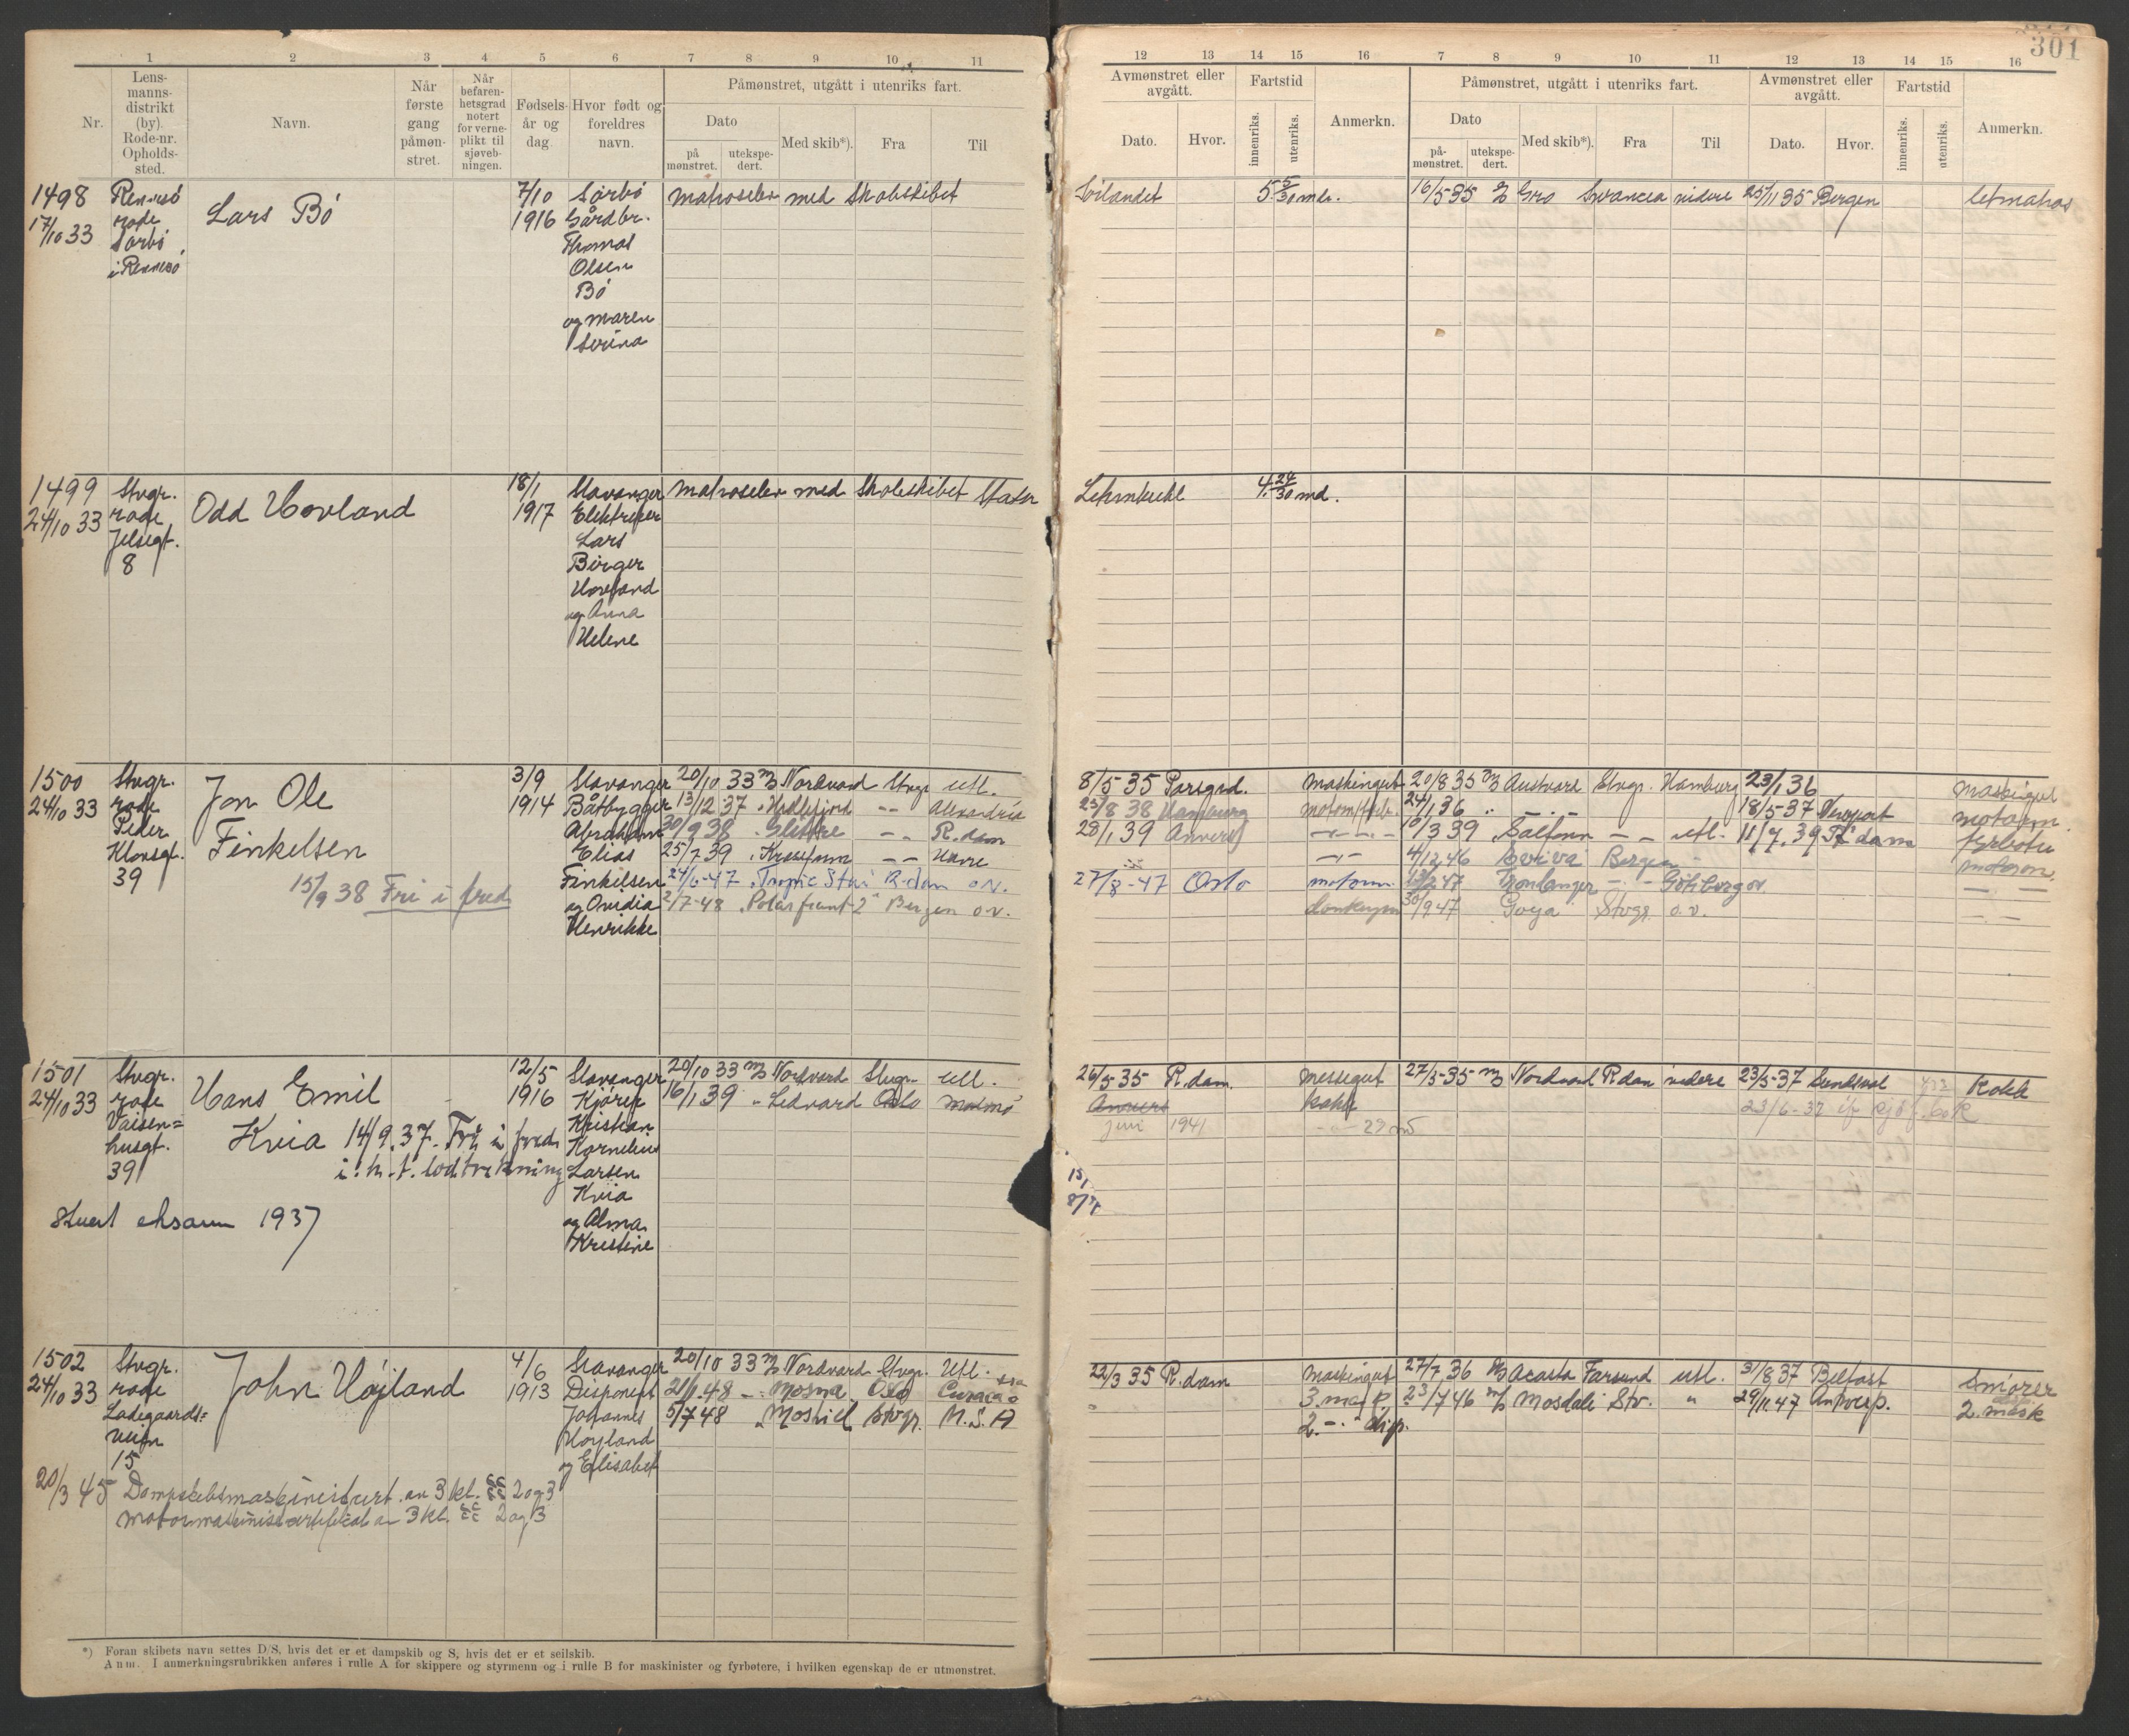 301
1 2 3 4 5 6 7 8 9 10 11
12 13 14 15 16 7 8 9 10 11 12 13 14 15 16
Nr.
Lens-
manns-
distrikt
(by).
Rode-nr.
Opholds-
sted.
Navn.
Når
første
gang
påmøn-
stret.
Når
befaren-
hetsgrad
notert
for verne-
plikt til
sjøveb-
ningen.
Fødsels-
år og
dag.
Hvor født og
foreldres
navn.
Påmønstret, utgått i utenriks fart.
Dato
på
mønstret.
utekspe-
dert.
Med skib*).
Fra
Til
Avmønstret eller
avgått.
Dato.
Hvor.
Fartstid
innenriks.
utenriks.
Anmerkn.
Påmønstret, utgått i utenriks fart.
Dato
på-
mønstret.
utekspe-
dert.
Med skib*).
Fra
Til
Avmønstret eller
avgått.
Dato.
Hvor.
Fartstid
innenriks.
utenriks.
Anmerkn.
1498
17/10 33
Rennesö
rode
Sörbö
i Rennesö
Lars Bö
7/10
1916
Sörbö
Gårdbr.
Thomas
Olsen
Bö
og Maren
Serina
Matroselev med Skoleskibet
Sörlandet
5 5/30 mdr.
16/5 35 Gro Swansea videre 25/11 35 Bergen
letmatros
1499
24/10 33
Stvgr.
rode
Jelsegt.
8
Odd Hovland
18/1
1917
Stavanger
Elektriker
Lars
Börger
Hovland
og Anna
Helene
Matroselev med Skoleskibet Statsr
Lehmkuhl
4 24/30 md.
1500
24/10 33
Stvgr.
rode
Peder
Klowsgt.
39
Jon Ole
Finkelsen
15/9 38 Fri i fred
3/9
1914
Stavanger
Båtbygger
Abraham
Elias
Finkelsen
og Ovidia
Henrikke
20/10 33 M/S Nordvard Stvgr Utl.
13/12 37 " Hellefjord -"- Alexandria
30/9 38 " Glittre -"- R.dam
25/7 39 " Krossfonn -"- Havre
24/6-47 " Tropic Star R-dam o.v.
2/7-48 " Polarfront 2" Bergen o.v.
8/5 35 Porsgrd. Maskingut
25/8 38 Hamburg
28/1 39 Anvers
27/8-47 Oslo motorm.
20/8 35 M/S Austvard Stvgr. Hamburg 23/1 36 Maskigut
24/1 36 18/5-37 Newport motorm.
10/3 39 Salfonn - - utl. 11/7. 39 R'dam fyrböter
4/12 46 Bergen motorm.
Göteborg ov
30/9 47 Goya Stvgr o.v.
1501
24/10 33
Stvgr.
rode
Vaisen=
husgt.
39
Hans Emil
Kvia 14/9.37. Fri i fred
i. h. t. lodtrekning
Stuert eksamen 1937
12/5
1916
Stavanger
Kjörer
Kristian
Kornelius
Larsen
Kvia
og Alma
Kristine
20/10 33 M/S Nordvard Stvgr. Utl.
16/1 39 " Ledvard Oslo Malmö
26/5-35 R.dam. Messegut
Anvers kokk
juni 1941
27/5-35 M/S Nordvard R.dam videre 23/5-37 Sundsval Kokk
23/6-37
1502
24/10 33
Stvgr.
rode
Ladegaards=
veien
15
John Höjland
4/6
1913
Stavanger
Disponent
Johannes
Höyland
og Elisabet
20/10 33 M/S Nordvard Stvgr. Utl.
21/1 48 -"- Mosna Oslo Curacao
5/7 48 " Moshill Stvgr. U.S.A
20/3 45 Dampskibsmaskinistsert. av 3 kl. 2 og 3
Motormaskinistsertifikat av 3 kl. 2 og 3
22/3 35 R.dam Maskingut
3. mask.
2. -"- disp.
27/7 36 M/S Acasta Farsund utl. 31/8 37 Belfast Smörer
23/7 46 M/S Mosdale Stv. " 29/11.47 Antwerp. 2. mask
*) Foran skibets navn settes D/S, hvis det er et dampskib og S, hvis det er et seilskib.
Anm. I anmerkningsrubrikken anføres i rulle A for skippere og styrmenn og i rulle B for maskinister og fyrbøtere, i hvilken egenskap de er utmønstret.